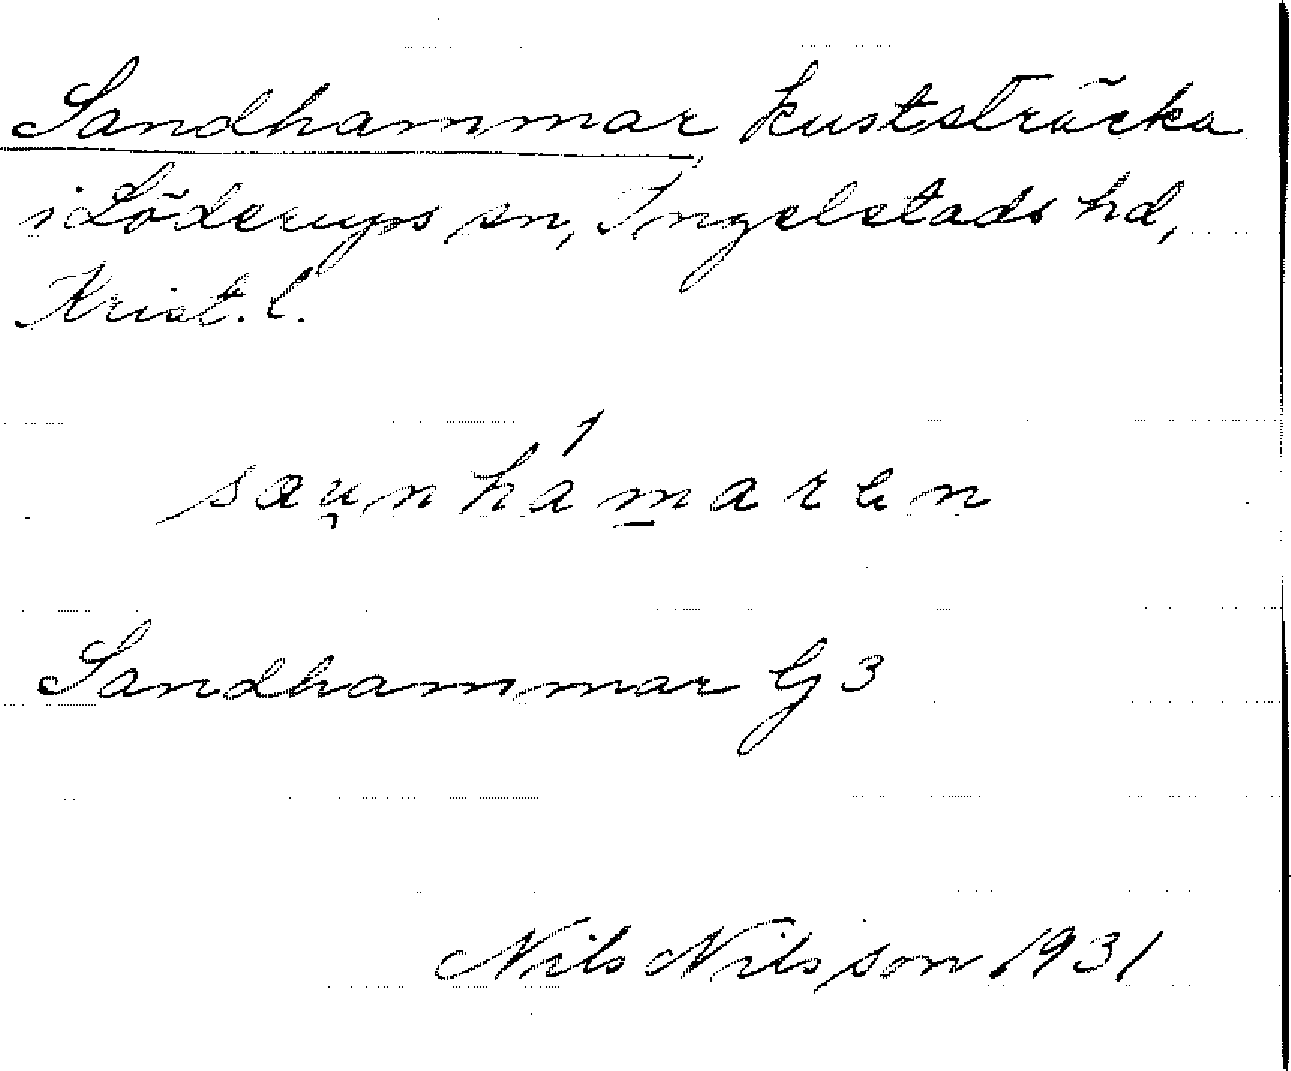 Sandhammar, kuststräcka
i Löderups sn, Ingelstads hd,
Krist. l.
sæu̡nhámaren
Sandhammar G 3
Nils Nilsson 1931